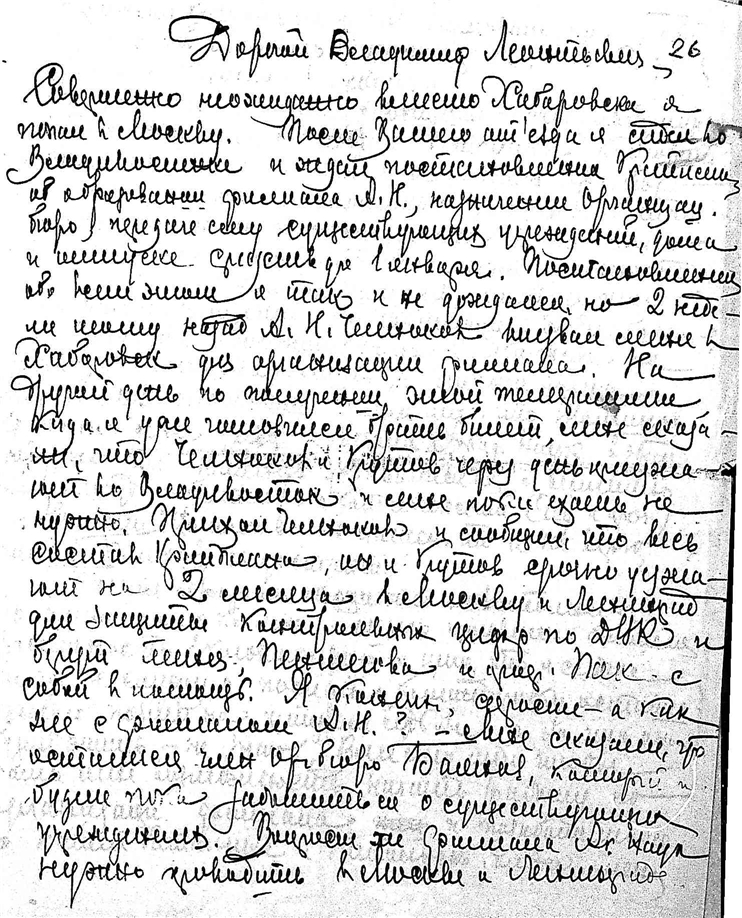 Дорогой Владимир Леонтьевич, 26
Совершенно неожиданно вместо Хабаровска я
попал в Москву. После Вашего от'езда я сидел во
Владивостоке и ждал постановления Крайисполк.
об образовании филиала А.Н., назначении Организац.
бюро, передаче ему существующих учреждений, дома
и отпуске средств до 1 января. Постановления
обо всем этом я так и не дождался, но 2 неде-
ли тому назад А. Н. Челноков вызвал меня в
Хабаровск для организации филиала. На
другой день по получении этой телеграммы
когда я уже готовился брать билет, мне сказа-
ли, что Челноков и Крутов через день приезжа-
ют во Владивосток и мне пока ехать не
нужно. Приехал Челноков и сообщил, что весь
состав Крайплана, он и Крутов срочно уезжа-
ют на 2 месяца в Москву и Ленинград
для защиты контрольных цифр по ДВК и
берут меня, и проф. с
собой в помощь. Я конечно, спросил – а как
же с филиалом А.Н.? – Мне сказали, что
остался член оргбюро который и
будет пока заботиться о существующих
учреждениях. Вопросы же филиала Ак. Наук
нужно проводить в Москве и Ленинграде